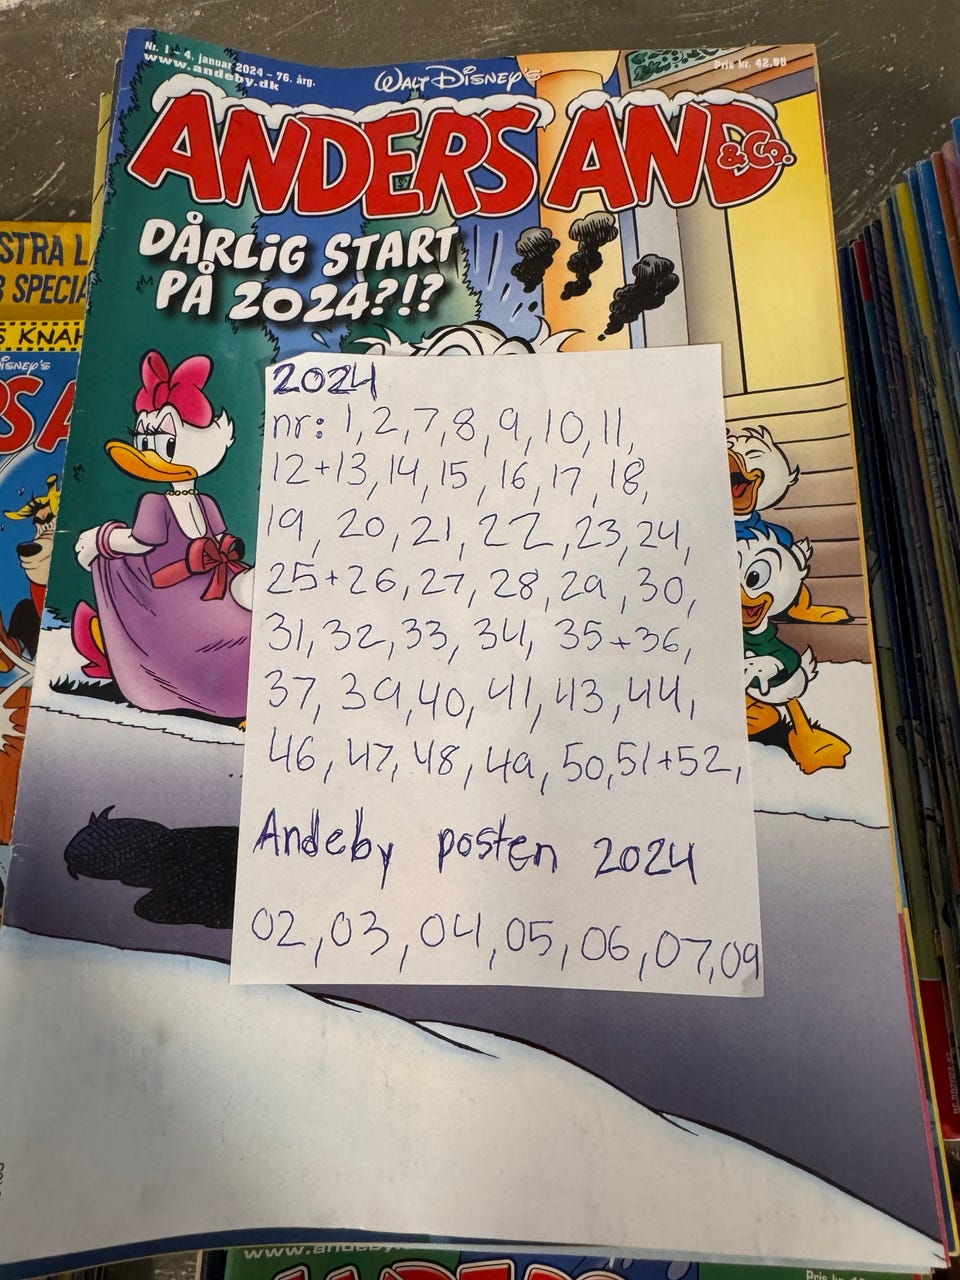 Nr. 1 - 4. januar 2024 - 76. årg.
www.andeby.dk
WALT DISNEY'S
Pris kr. 42,95
ANDERS AND
& Co.
DÅRLIG START
PÅ 2024?!?
STRA L
SPECIA
S KNAH
ISNEY'S
RS A
2024
nr: 1,2,7,8,9,10,11,
12+13,14,15,16,17,18,
19, 20,21,22,23,24,
25+26,27,28,29,30,
31,32,33,34,35+36,
37,39,40,41,43,44,
46,47,48,49,50,51+52,
Andeby posten 2024
02,03,04,05,06,07,09
www.andeby.
Pris kr.